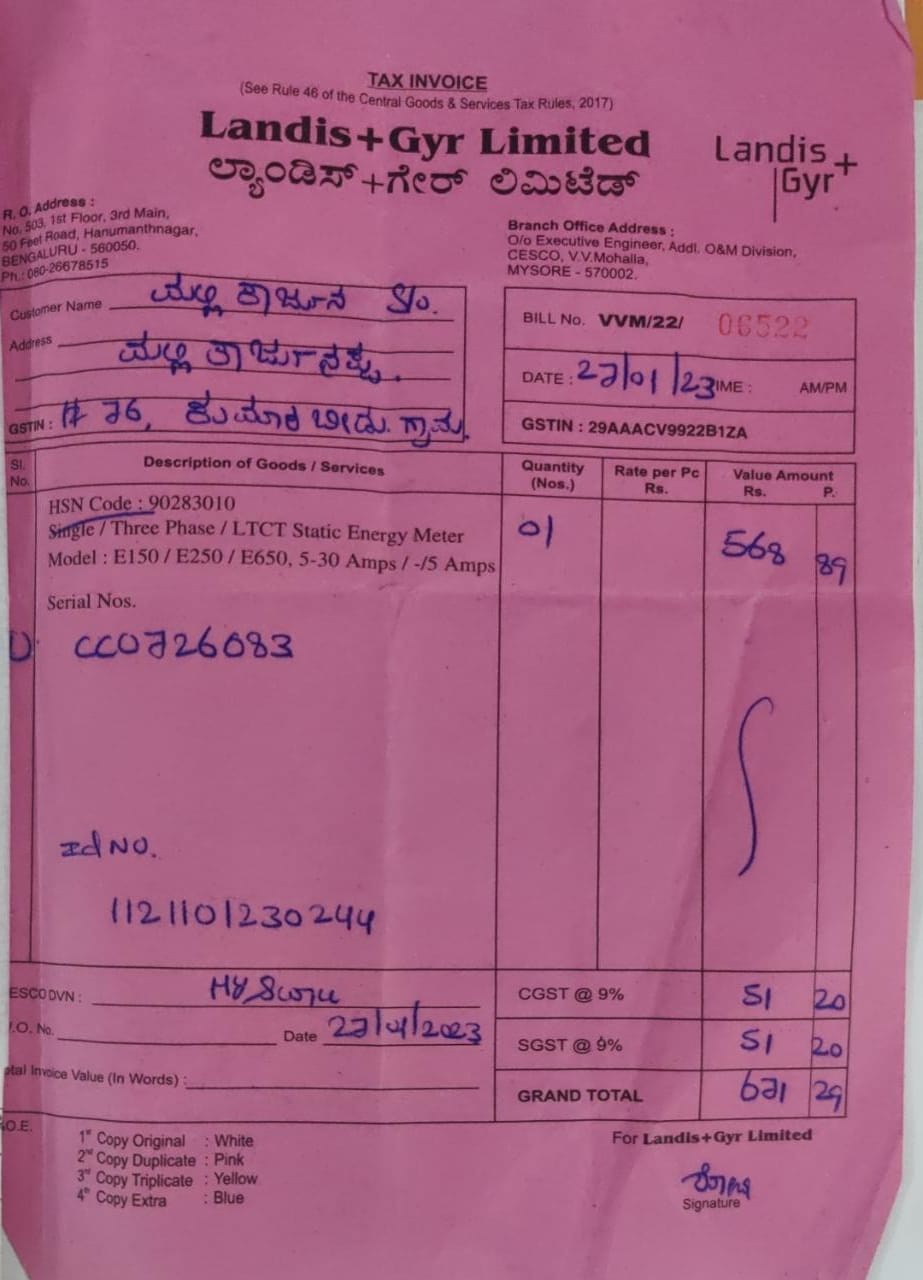 TAX INVOICE
(See Rule 46 of the Central Goods & Services Tax Rules, 2017)
Landis+Gyr Limited
ಲ್ಯಾಂಡಿಸ್+ಗೇರ್ ಲಿಮಿಟೆಡ್
Landis+
Gyr
R. O. Address :
No. 503, 1st Floor, 3rd Main,
50 Feet Road, Hanumanthnagar,
BENGALURU - 560050.
Ph.: 080-26678515
Branch Office Address :
O/o Executive Engineer, Addl. O&M Division,
CESCO, V.V.Mohalla,
MYSORE - 570002.
Customer Name ಮಲ್ಲಿಕಾರ್ಜುನ S/o.
Address
GSTIN : # 76, ಕುಮಾರಬೀಡು. ಗ್ರಾಮ.
BILL No. VVM/22/ 06522
DATE : 27/01/23 IME : AM/PM
GSTIN : 29AAACV9922B1ZA
Sl. No. Description of Goods / Services Quantity (Nos.) Rate per Pc Rs. Value Amount Rs. P.
HSN Code : 90283010
Single / Three Phase / LTCT Static Energy Meter 01 568 89
Model : E150 / E250 / E650, 5-30 Amps / -/5 Amps
Serial Nos.
CC0726083
Id NO.
1121101230244
ESCO DVN :
.O. No. Date 27/01/2023
tal Invoice Value (In Words) :
CGST @ 9% 51 20
SGST @ 9% 51 20
GRAND TOTAL 671 29
.O.E.
1st Copy Original : White
2nd Copy Duplicate : Pink
3rd Copy Triplicate : Yellow
4th Copy Extra : Blue
For Landis+Gyr Limited
Signature